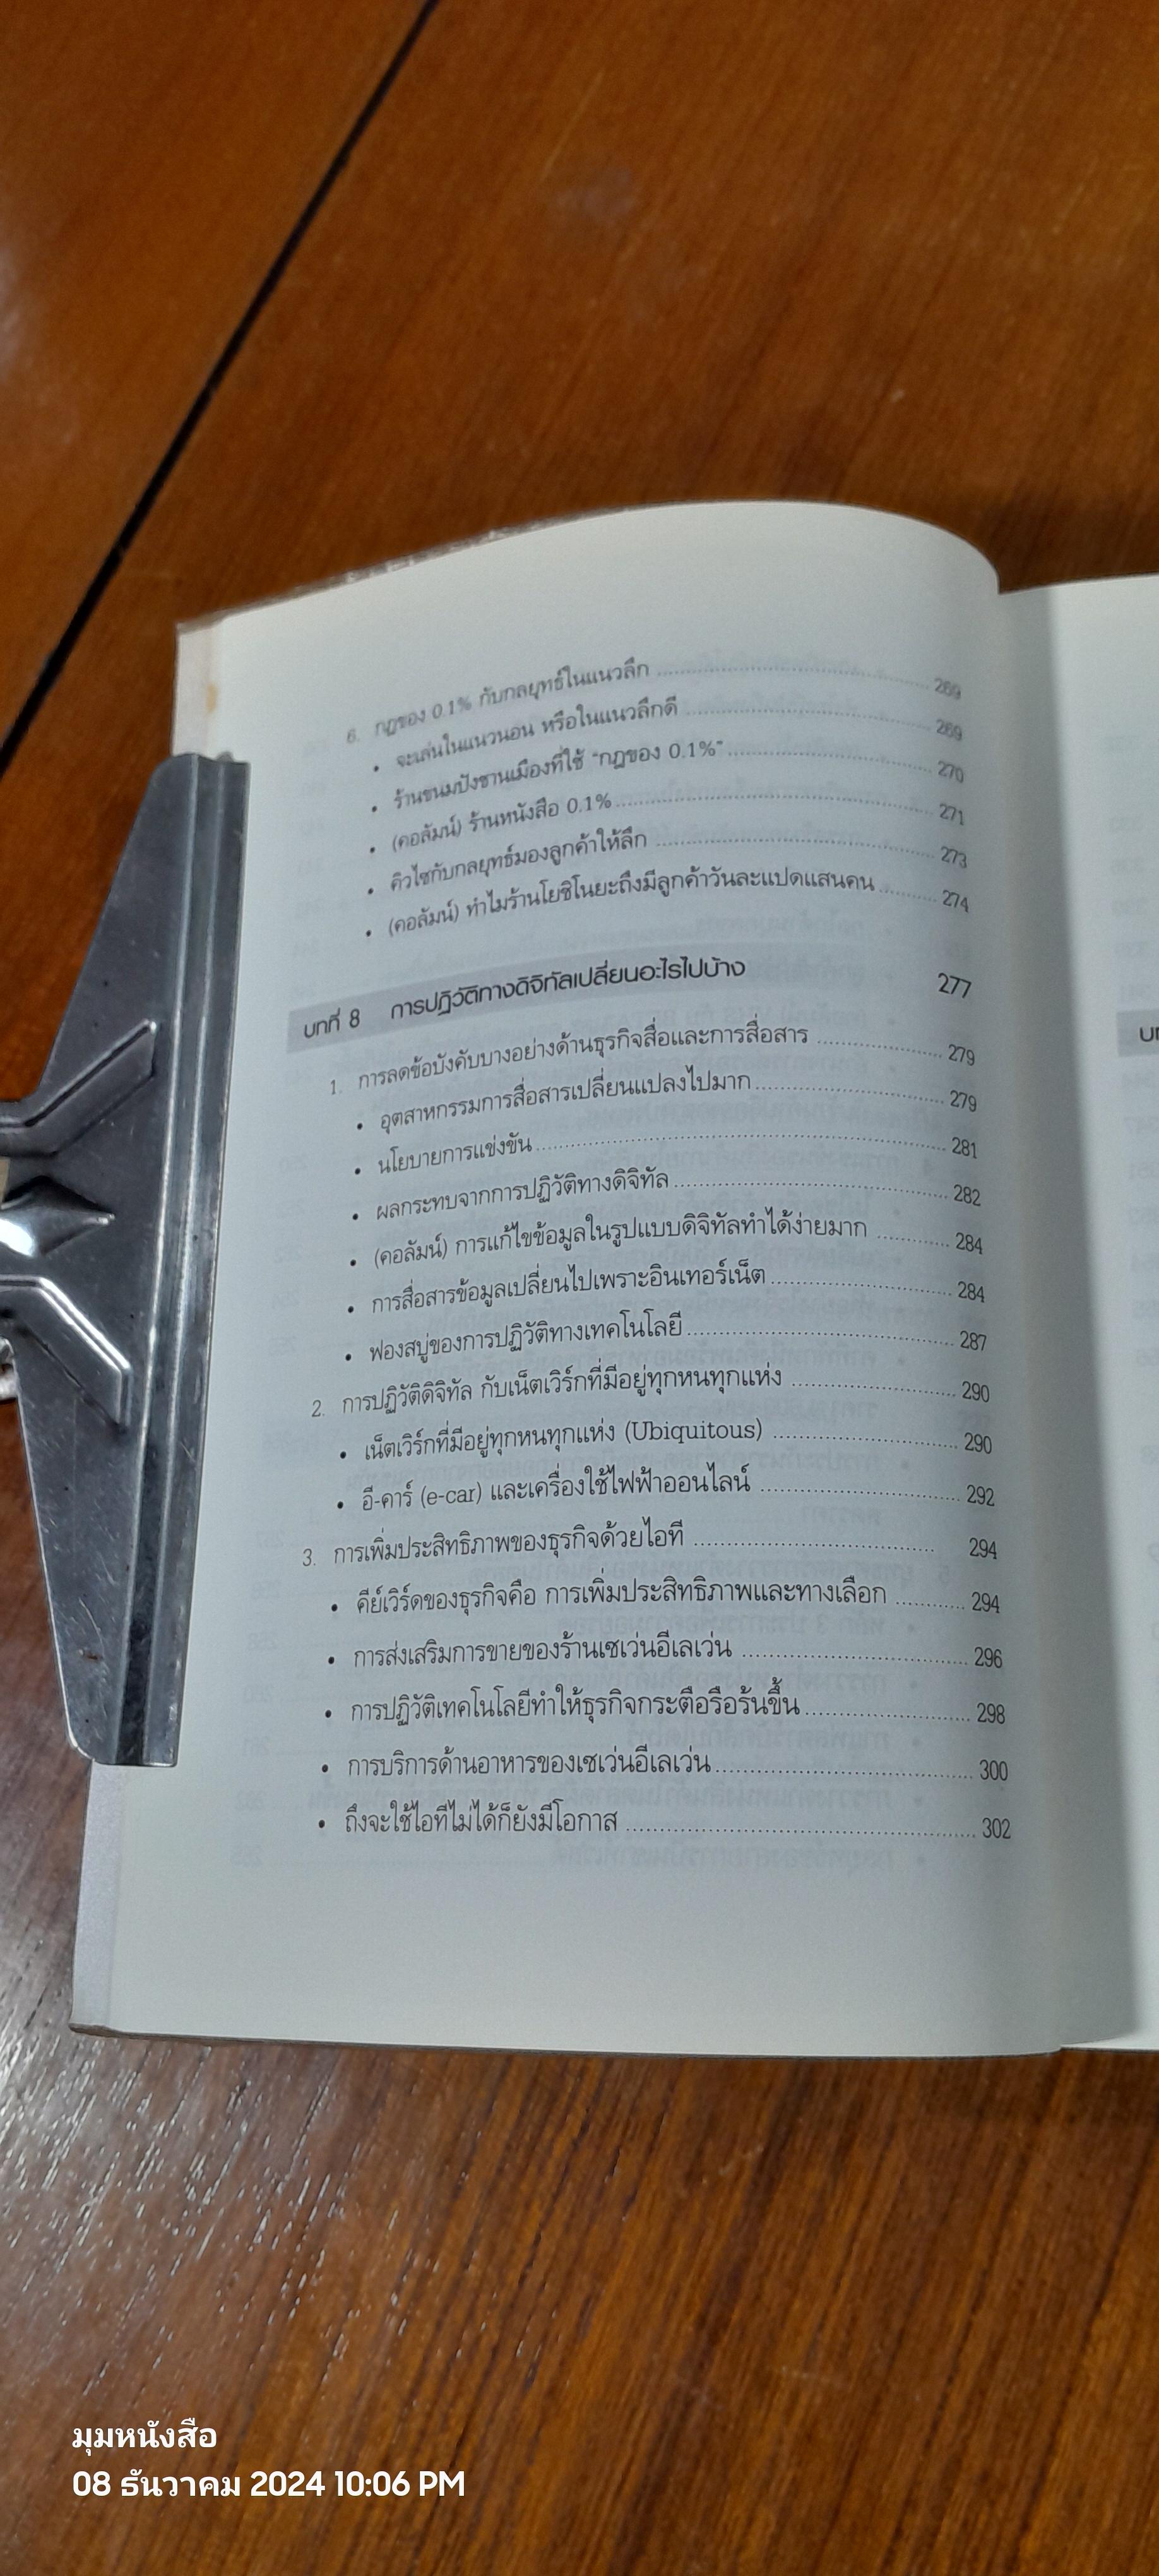 6. กฎของ 0.1% กับกลยุทธ์ในแนวลึก ........ 269
• จะเล่นในแนวนอน หรือในแนวลึกดี ........ 269
• ร้านขนมปังชานเมืองที่ใช้ “กฎของ 0.1%” ........ 270
• (คอลัมน์) ร้านหนังสือ 0.1% ........ 271
• คิวไซกับกลยุทธ์มองลูกค้าให้ลึก ........ 273
• (คอลัมน์) ทำไมร้านโยชิโนยะถึงมีลูกค้าวันละแปดแสนคน ........ 274
บทที่ 8 การปฏิวัติทางดิจิทัลเปลี่ยนอะไรไปบ้าง 277
1. การลดข้อบังคับบางอย่างด้านธุรกิจสื่อและการสื่อสาร ........ 279
• อุตสาหกรรมการสื่อสารเปลี่ยนแปลงไปมาก ........ 279
• นโยบายการแข่งขัน ........ 281
• ผลกระทบจากการปฏิวัติทางดิจิทัล ........ 282
• (คอลัมน์) การแก้ไขข้อมูลในรูปแบบดิจิทัลทำได้ง่ายมาก ........ 284
• การสื่อสารข้อมูลเปลี่ยนไปเพราะอินเทอร์เน็ต ........ 284
• ฟองสบู่ของการปฏิวัติทางเทคโนโลยี ........ 287
2. การปฏิวัติดิจิทัล กับเน็ตเวิร์กที่มีอยู่ทุกหนทุกแห่ง ........ 290
• เน็ตเวิร์กที่มีอยู่ทุกหนทุกแห่ง (Ubiquitous) ........ 290
• อี-คาร์ (e-car) และเครื่องใช้ไฟฟ้าออนไลน์ ........ 292
3. การเพิ่มประสิทธิภาพของธุรกิจด้วยไอที ........ 294
• คีย์เวิร์ดของธุรกิจคือ การเพิ่มประสิทธิภาพและทางเลือก ........ 294
• การส่งเสริมการขายของร้านเซเว่นอีเลเว่น ........ 296
• การปฏิวัติเทคโนโลยีทำให้ธุรกิจกระตือรือร้นขึ้น ........ 298
• การบริการด้านอาหารของเซเว่นอีเลเว่น ........ 300
• ถึงจะใช้ไอทีไม่ได้ก็ยังมีโอกาส ........ 302
มุมหนังสือ
08 ธันวาคม 2024 10:06 PM